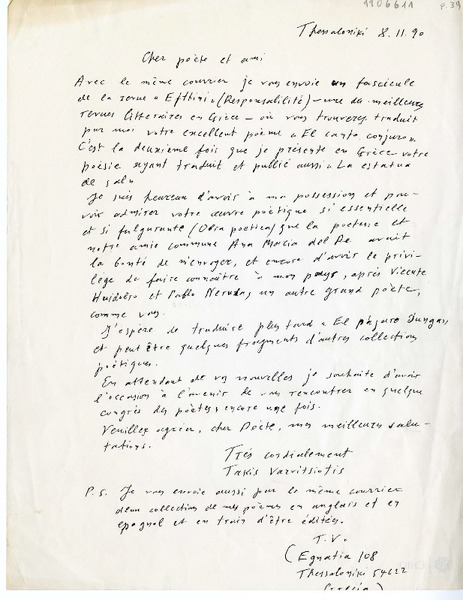 1106611
P. 39
Thessaloniki 8.11.90
Cher poète et ami
Avec le même courrier je vous envoie un fascicule
de la revue « Efthini » (Responsabilité) – une des meilleures
revues littéraires en Grèce – où vous trouverez traduit
par moi votre excellent poème « El canto conjuro ».
C'est la deuxième fois que je présente en Grèce votre
poésie ayant traduit et publié aussi « La estatua
de sal »
Je suis heureux d'avoir à ma possession et pou-
voir admirer votre œuvre poétique si essentielle
et si fulgurante (Obra poetica) que la poétesse et
notre amie commune Ana Maria del Re avait
la bonté de m'envoyer, et encore d'avoir le privi-
lège de faire connaître à mon pays, après Vicente
Huidobro et Pablo Neruda, un autre grand poète,
comme vous.
J'espère de traduire plus tard « El pájaro Dungan
et peut être quelques fragments d'autres collections
poétiques.
En attendant de vos nouvelles je souhaite d'avoir
l'occasion à l'avenir de vous rencontrer en quelque
congrès des poètes, encore une fois.
Veuillez agréer, cher Poète, mes meilleures salu-
tations.
Très cordialement
Takis Varvitsiotis
P.S. Je vous envoie aussi par le même courrier
deux collections de mes poèmes en anglais et en
epagnol et en train d'être éditées.
T.V.
(Egnatia 108
Thessaloniki 54622
Grecia)